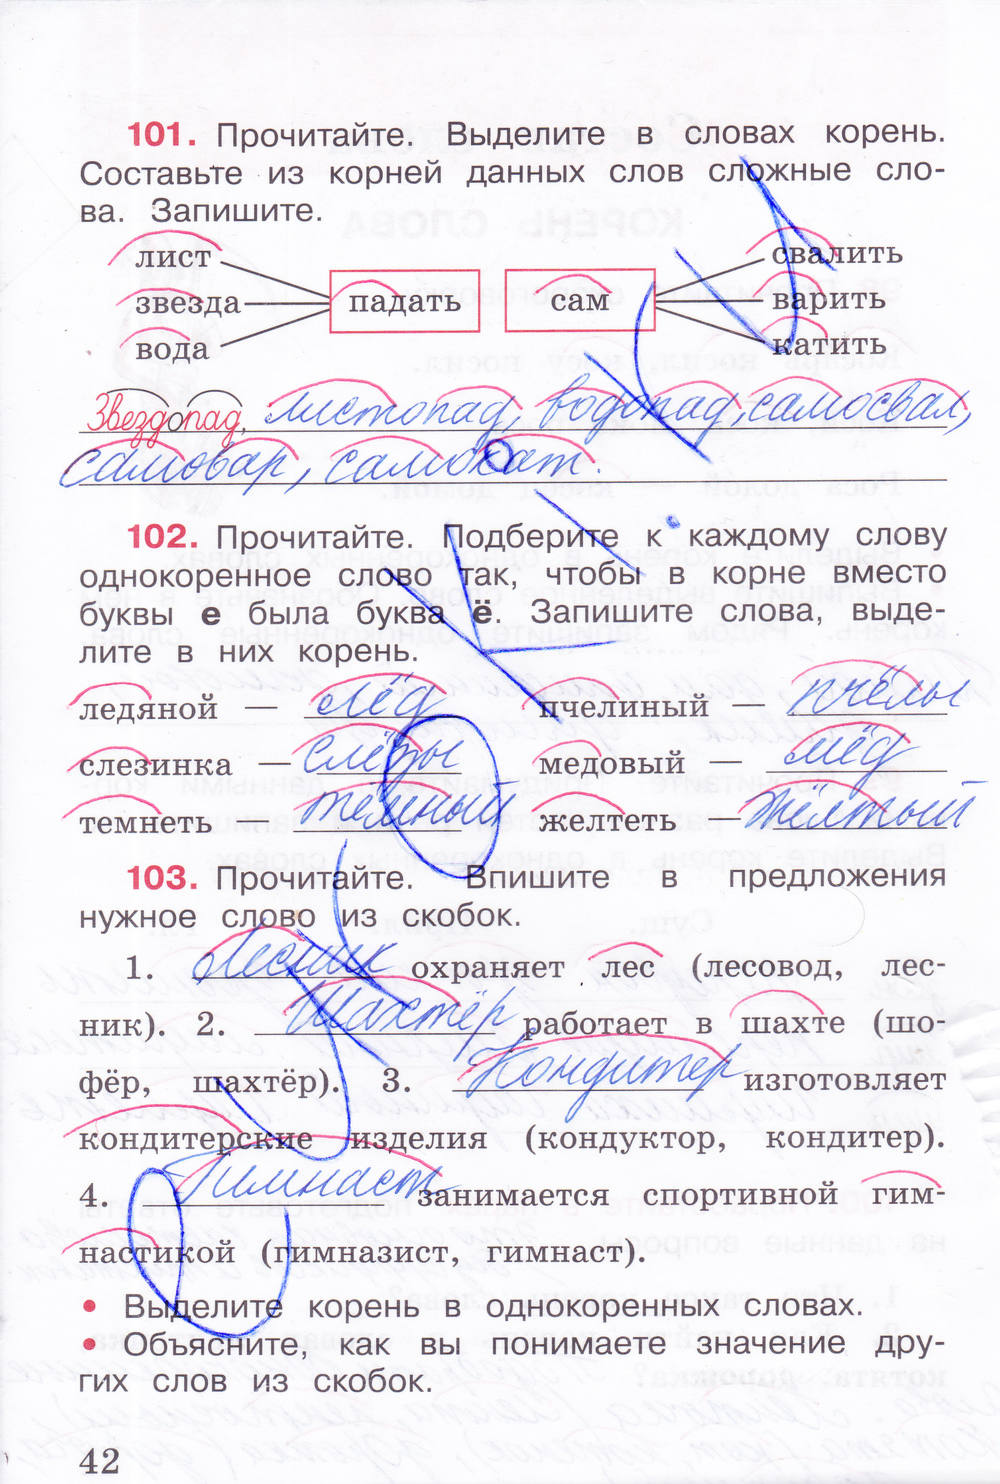 101. Прочитайте. Выделите в словах корень.
Составьте из корней данных слов сложные сло-
ва. Запишите.
лист
звезда
вода
падать
сам
свалить
варить
катить
Звездопад, листопад, водопад, самосвал,
самовар, самокат.
102. Прочитайте. Подберите к каждому слову
однокоренное слово так, чтобы в корне вместо
буквы е была буква ё. Запишите слова, выде-
лите в них корень.
ледяной — лёд пчелиный — пчёлы
слезинка — слёзы медовый — мёд
темнеть тёмный желтеть — жёлтый
103. Прочитайте. Впишите в предложения
нужное слово из скобок.
1. Лесник охраняет лес (лесовод, лес-
ник). 2. Шахтёр работает в шахте (шо-
фёр, шахтёр). 3. Кондитер изготовляет
кондитерские изделия (кондуктор, кондитер).
4. Гимнаст занимается спортивной гим-
настикой (гимназист, гимнаст).
• Выделите корень в однокоренных словах.
• Объясните, как вы понимаете значение дру-
гих слов из скобок.
42